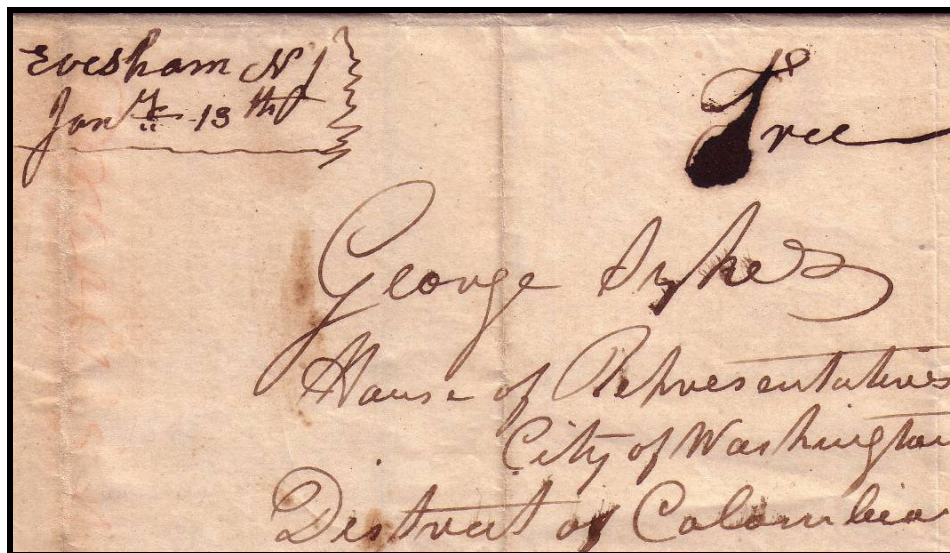 Evesham N J
Jany 13th
Free
George Sykes
House of Representatives
City of Washington
District of Colombia